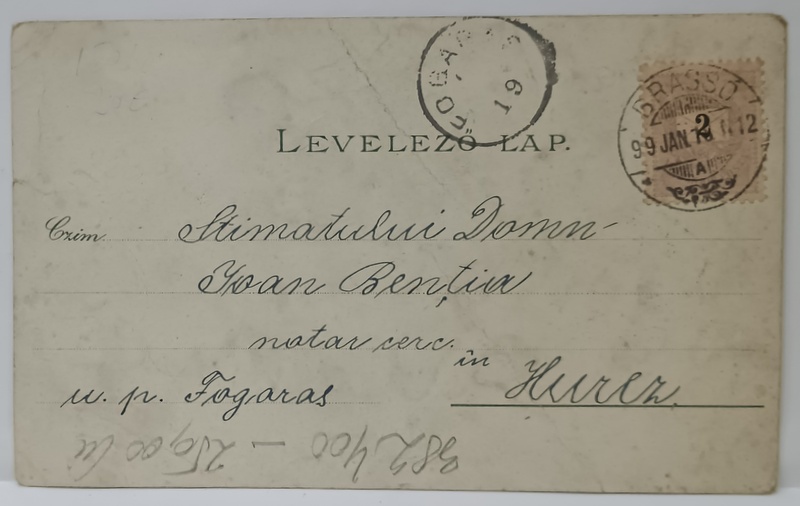 FOGARAS
19
BRASSÓ
2
99 JAN. 12
A
LEVELEZŐ LAP.
Czim
Stimatului Domn
Ioan Benția
notar cerc.
în Hurez
u. p. Fogaras
382400 – 250,00 lei